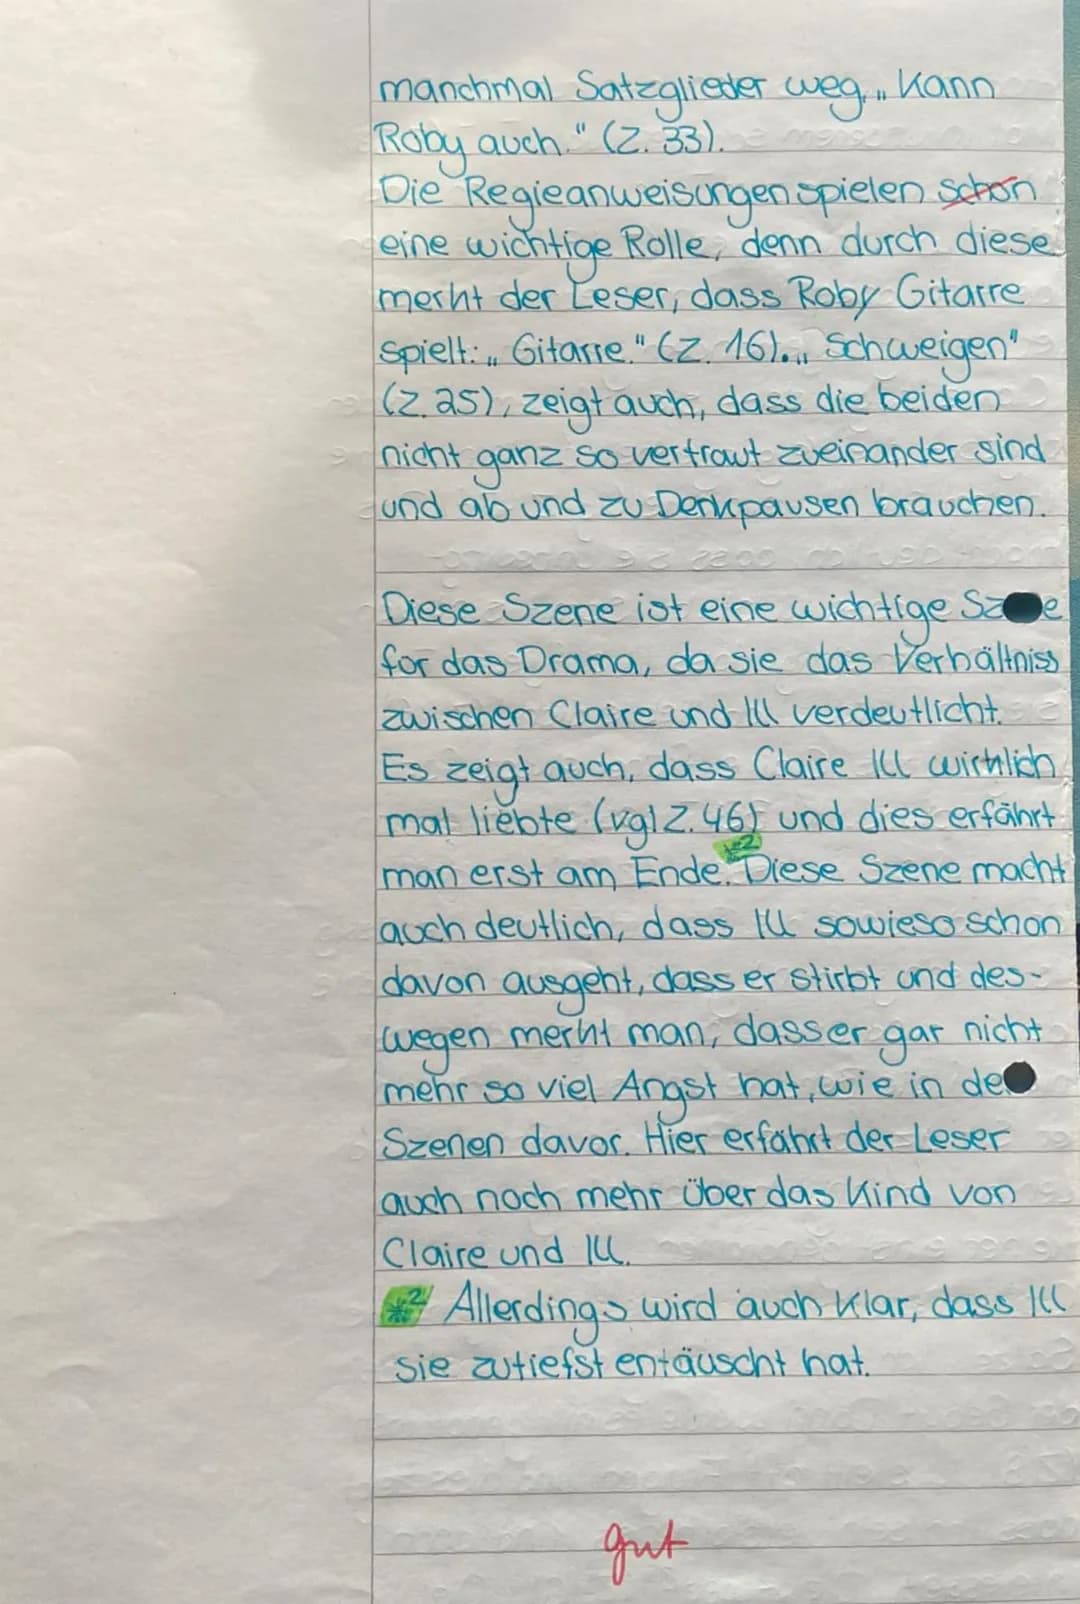 manchmal Satzglieder weg. „Kann
Roby auch." (Z. 33).
Die Regieanweisungen spielen schon
eine wichtige Rolle, denn durch diese
merkt der Leser, dass Roby Gitarre
spielt: „Gitarre." (Z. 16). „Schweigen"
(Z. 25), zeigt auch, dass die beiden
nicht ganz so vertraut zueinander sind
und ab und zu Denkpausen brauchen.
Diese Szene ist eine wichtige
für das Drama, da sie das Verhältniss
zwischen Claire und Ill verdeutlicht.
Es zeigt auch, dass Claire Ill wirklich
mal liebte (vgl Z. 46) und dies erfährt
man erst am Ende. *2 Diese Szene macht
auch deutlich, dass Ill sowieso schon
davon ausgeht, dass er stirbt und des-
wegen merkt man, dass er gar nicht
mehr so viel Angst hat, wie in
Szenen davor. Hier erfährt der Leser
auch noch mehr über das Kind von
Claire und Ill.
*2 Allerdings wird auch klar, dass Ill
sie zutiefst entäuscht hat.
gut